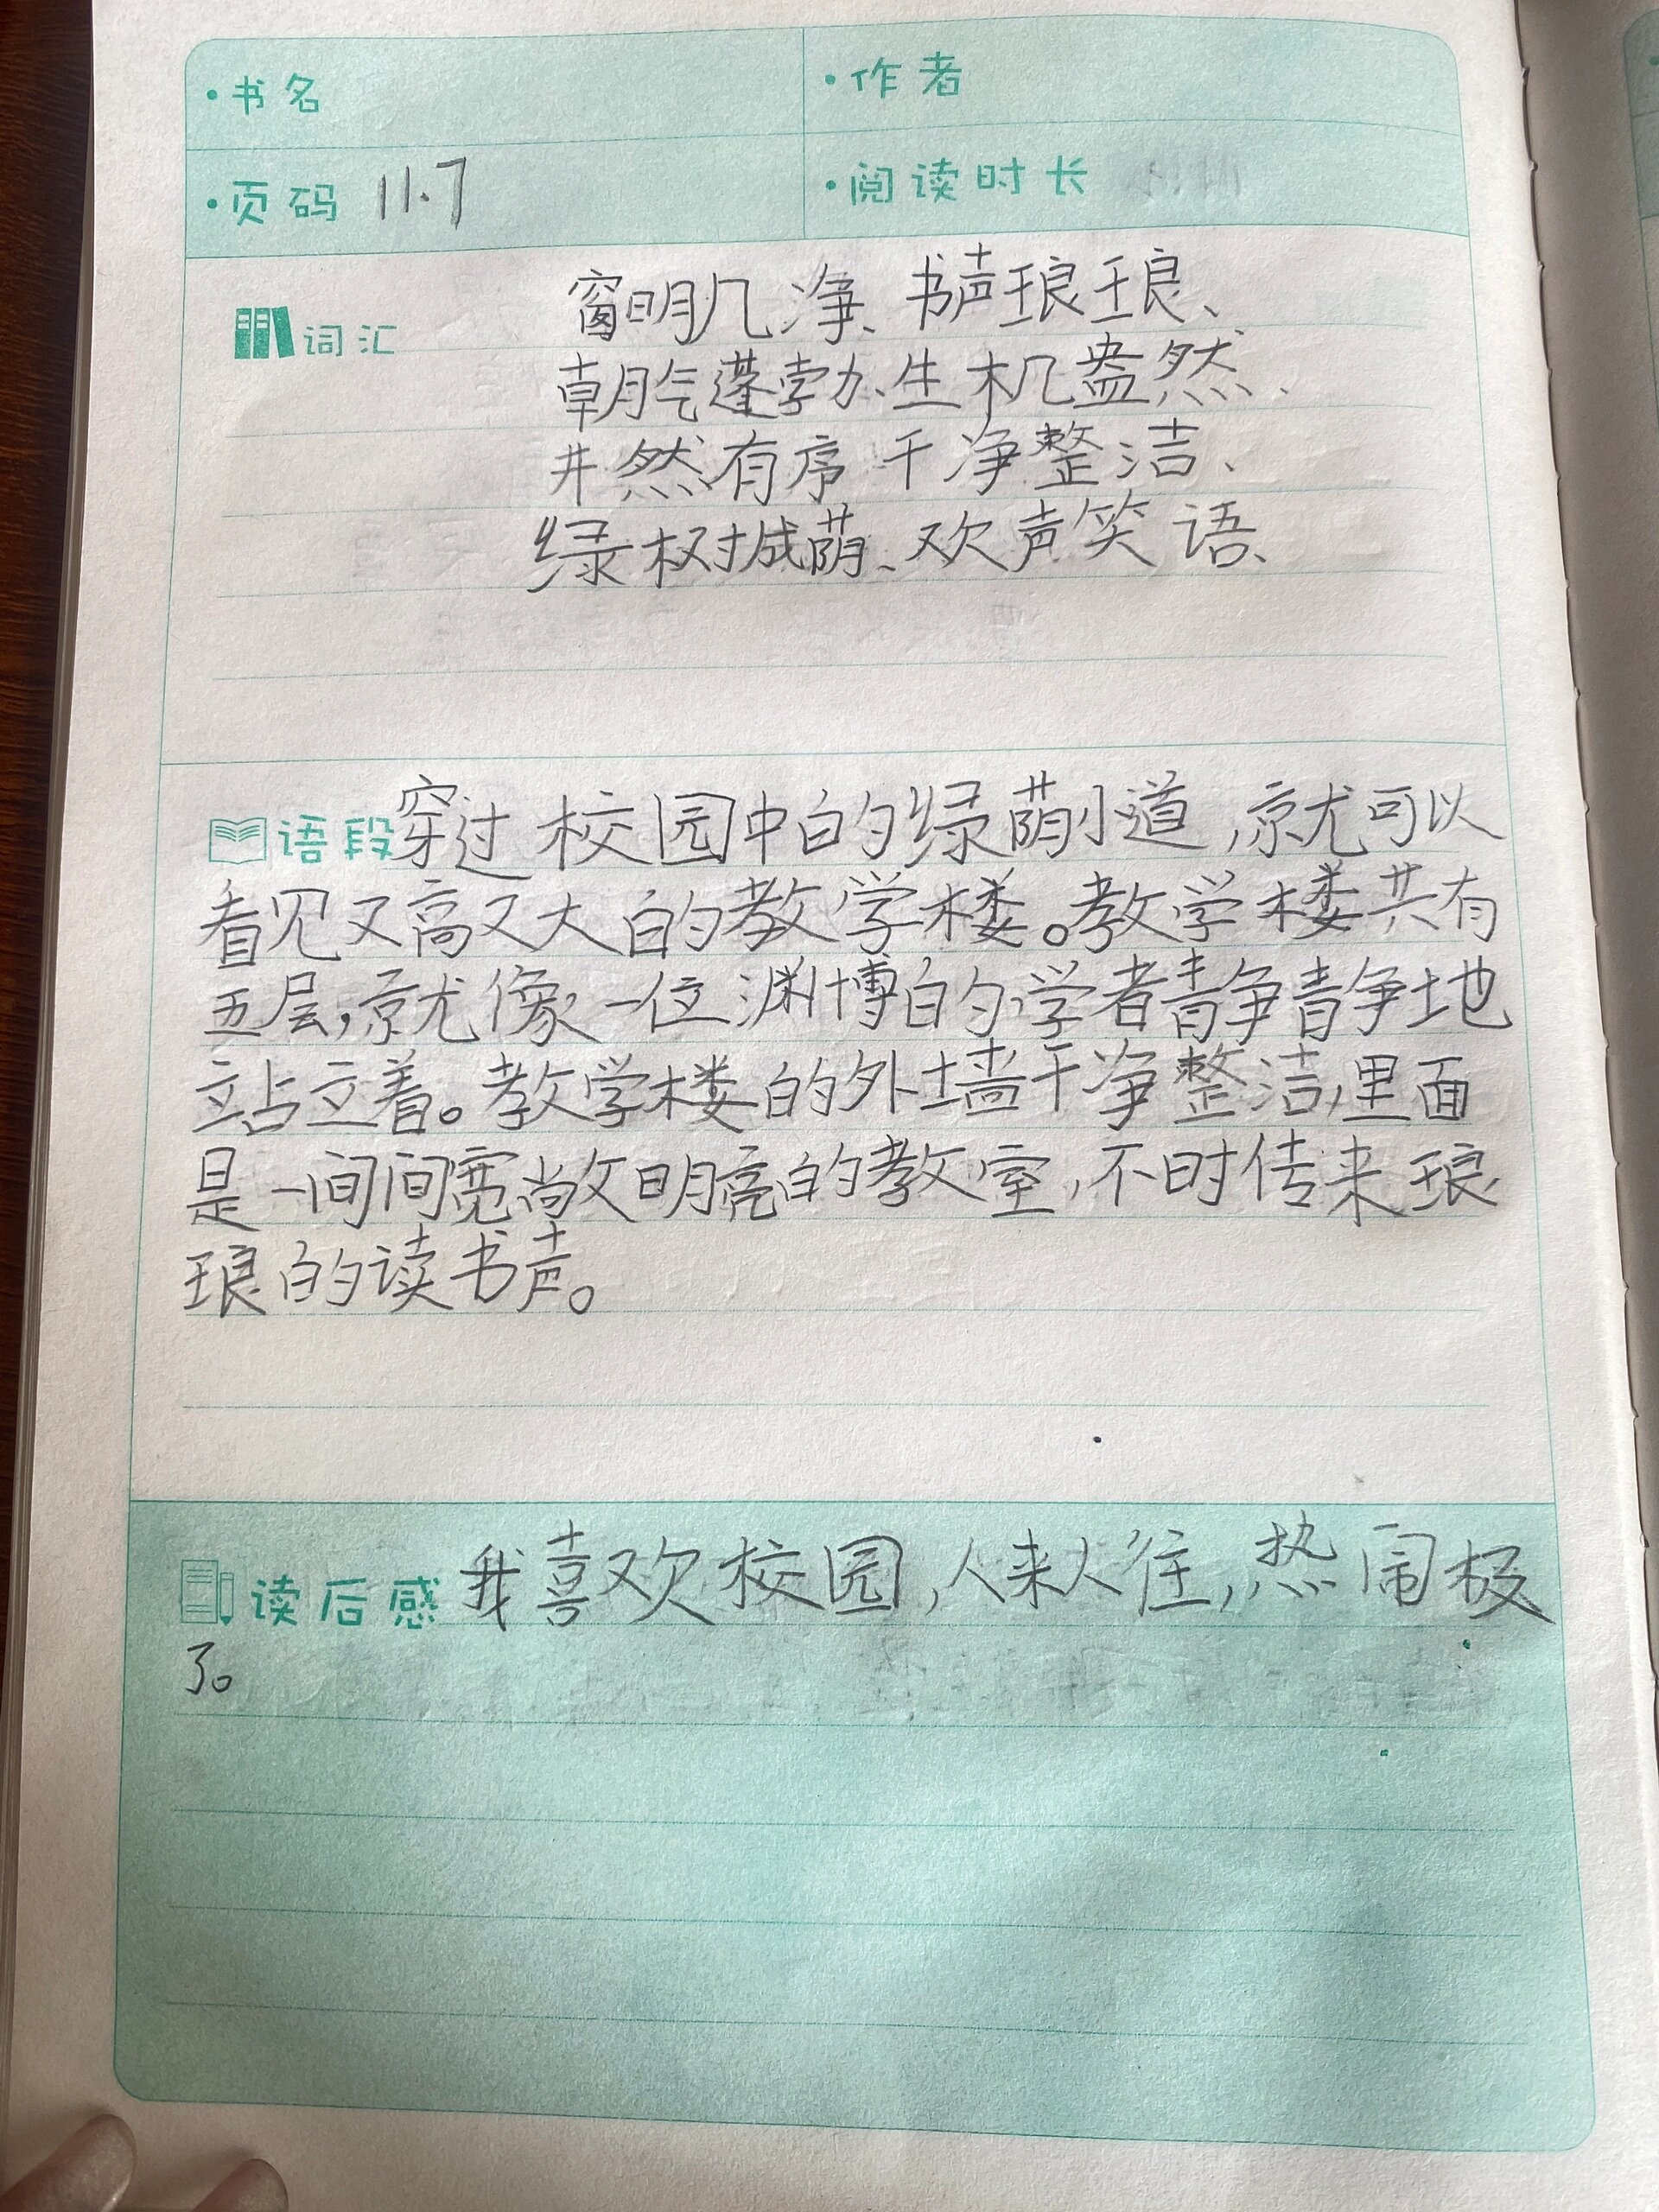 ·书名
·作者
·页码 11.7
·阅读时长
词汇
窗明几净、书声琅琅、
朝气蓬勃、生机盎然、
井然有序 干净整洁、
绿树城荫、欢声笑语、
语段 穿过校园中的绿荫小道,就可以
看见又高又大的教学楼。教学楼共有
五层,就像一位渊博的学者静静地
站立着。教学楼的外墙干净整洁,里面
是一间间宽敞明亮的教室,不时传来琅
琅的读书声。
读后感 我喜欢校园,人来人往,热闹极
了。